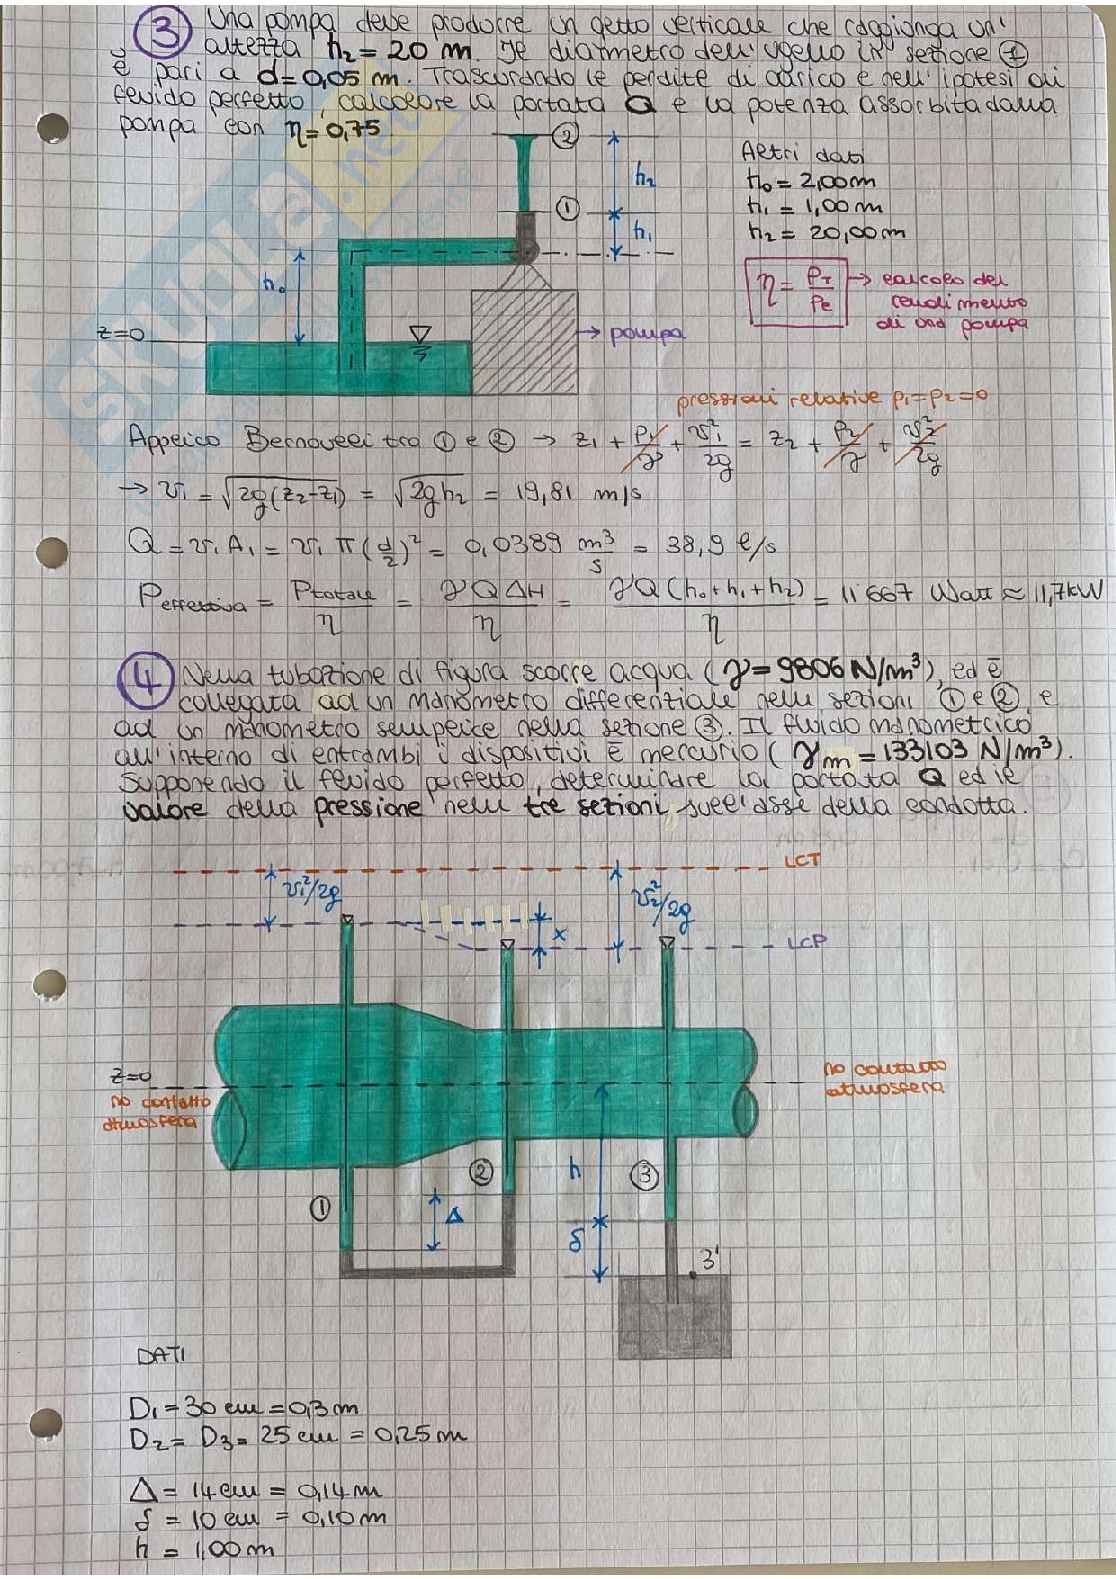 ③ Una pompa deve produrre un getto verticale che raggiunga un'
altezza h₂ = 20 m. Il diametro dell'ugello in sezione ①
è pari a d = 0,05 m. Trascurando le perdite di carico e nell'ipotesi di
fluido perfetto, calcolare la portata Q e la potenza assorbita dalla
pompa con η = 0,75
②
h₂
①
h₁
h₀
z=0
→ pompa
Altri dati
h₀ = 2,00 m
h₁ = 1,00 m
h₂ = 20,00 m
η = PT/Pe → calcolo del
rendimento
di una pompa
pressioni relative p₁=p₂=0
Applico Bernoulli tra ① e ② → z₁ + p₁/γ + v₁²/2g = z₂ + p₂/γ + v₂²/2g
→ v₁ = √2g(z₂-z₁) = √2gh₂ = 19,81 m/s
Q = v₁A₁ = v₁ π(d/2)² = 0,0389 m³/s = 38,9 l/s
Peffettiva = Ptotale/η = γQΔH/η = γQ(h₀+h₁+h₂)/η = 11'667 Watt ≈ 11,7kW
④ Nella tubazione di figura scorre acqua (γ = 9806 N/m³), ed è
collegata ad un manometro differenziale nelle sezioni ① e ② e
ad un manometro semplice nella sezione ③. Il fluido manometrico
all'interno di entrambi i dispositivi è mercurio (γm = 133103 N/m³).
Supponendo il fluido perfetto, determinare la portata Q ed il
valore della pressione nelle tre sezioni, sull'asse della condotta.
LCT
v₁²/2g
v₂²/2g
x
LCP
z=0
no contatto
atmosfera
no contatto
atmosfera
①
②
Δ
h
δ
③
3'
DATI
D₁ = 30 cm = 0,3 m
D₂ = D₃ = 25 cm = 0,25 m
Δ = 14 cm = 0,14 m
δ = 10 cm = 0,10 m
h = 1,00 m